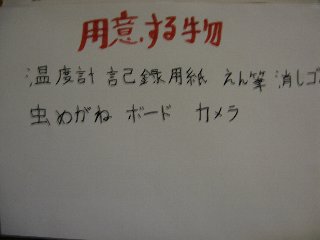 用意する物
温度計 記録用紙 えん筆 消しゴ
虫めがね ボード カメラ